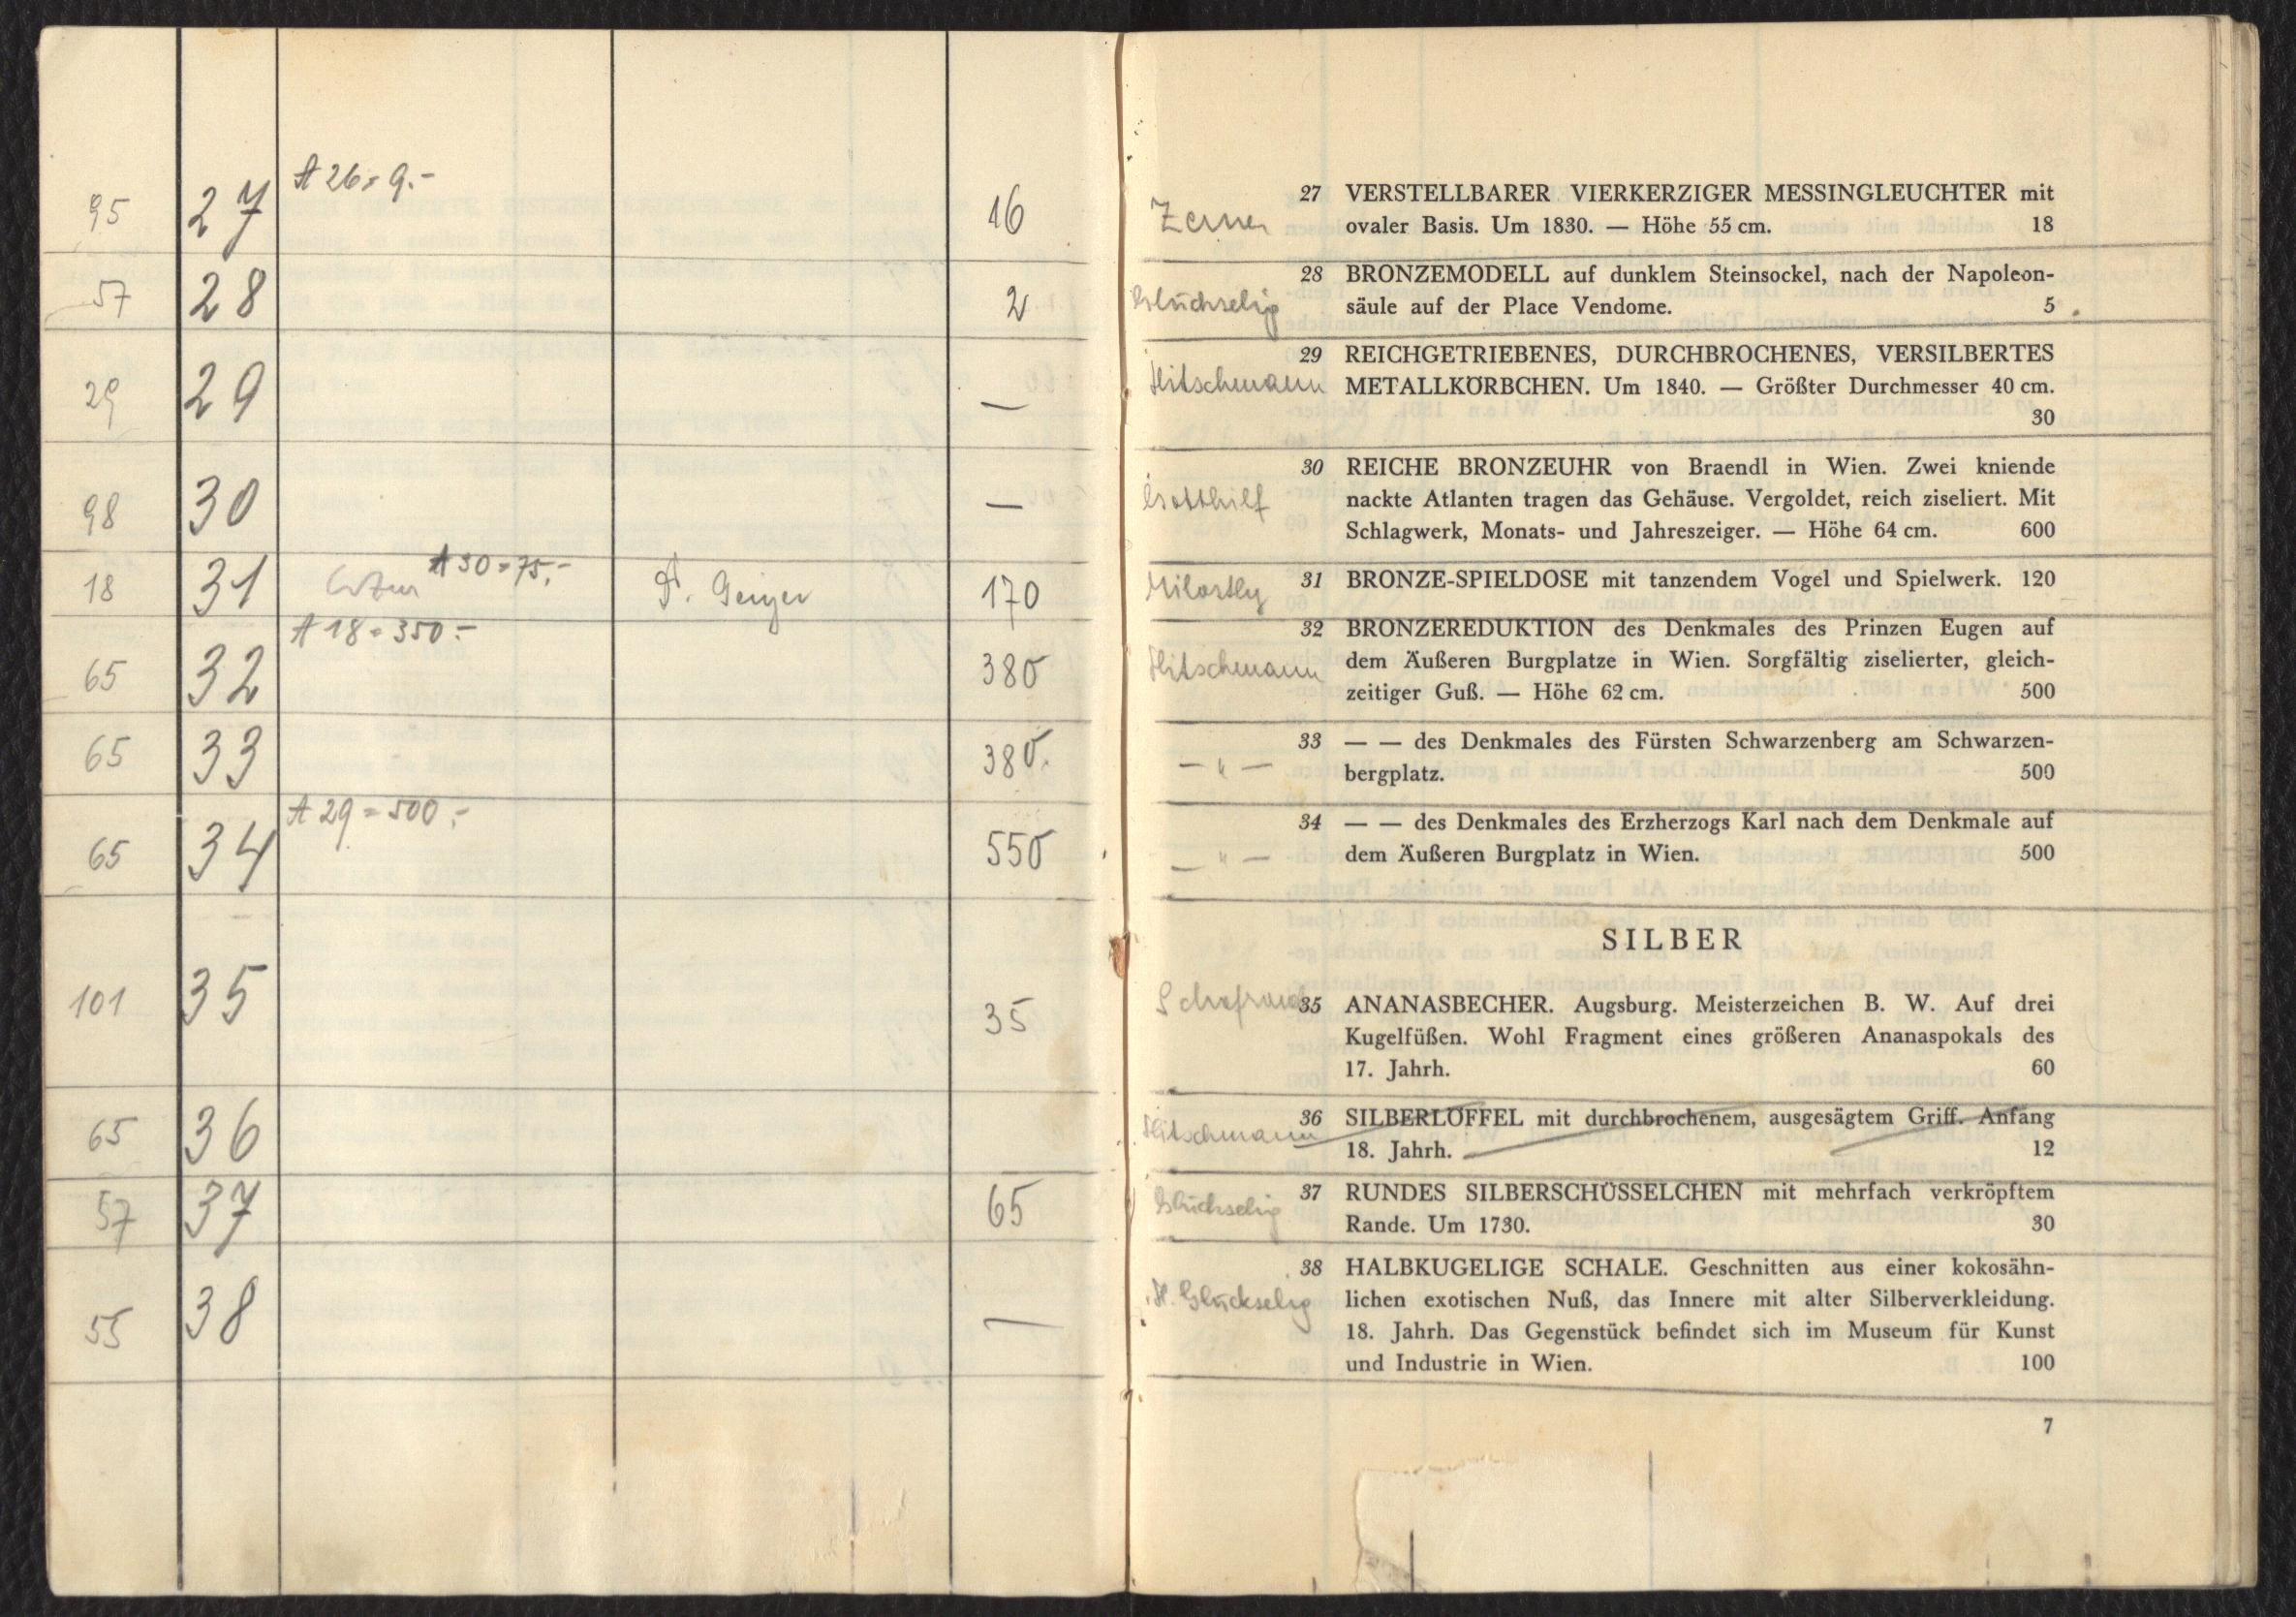 A 26 = 9.-
95 27 16
57 28 2
29 29 —
98 30 —
A 30 = 75.-
18 31 Dr. Geiger 170
A 18 = 350.-
65 32 380
65 33 380.
A 29 = 500.-
65 34 550
101 35 35
65 36
57 37 65
55 38 —
Zerner
27 VERSTELLBARER VIERKERZIGER MESSINGLEUCHTER mit
ovaler Basis. Um 1830. — Höhe 55 cm. 18
Glückselig
28 BRONZEMODELL auf dunklem Steinsockel, nach der Napoleon-
säule auf der Place Vendome. 5
Hitschmann
29 REICHGETRIEBENES, DURCHBROCHENES, VERSILBERTES
METALLKÖRBCHEN. Um 1840. — Größter Durchmesser 40 cm.
30
Gotthilf
30 REICHE BRONZEUHR von Braendl in Wien. Zwei kniende
nackte Atlanten tragen das Gehäuse. Vergoldet, reich ziseliert. Mit
Schlagwerk, Monats- und Jahreszeiger. — Höhe 64 cm. 600
Milostly
31 BRONZE-SPIELDOSE mit tanzendem Vogel und Spielwerk. 120
Hitschmann
32 BRONZEREDUKTION des Denkmales des Prinzen Eugen auf
dem Äußeren Burgplatze in Wien. Sorgfältig ziselierter, gleich-
zeitiger Guß. — Höhe 62 cm. 500
— " —
33 — — des Denkmales des Fürsten Schwarzenberg am Schwarzen-
bergplatz. 500
— " —
34 — — des Denkmales des Erzherzogs Karl nach dem Denkmale auf
dem Äußeren Burgplatz in Wien. 500
SILBER
35 ANANASBECHER. Augsburg. Meisterzeichen B. W. Auf drei
Kugelfüßen. Wohl Fragment eines größeren Ananaspokals des
17. Jahrh. 60
Hitschmann
36 SILBERLÖFFEL mit durchbrochenem, ausgesägtem Griff. Anfang
18. Jahrh. 12
Glückselig
37 RUNDES SILBERSCHÜSSELCHEN mit mehrfach verkröpftem
Rande. Um 1730. 30
H. Glückselig
38 HALBKUGELIGE SCHALE. Geschnitten aus einer kokosähn-
lichen exotischen Nuß, das Innere mit alter Silberverkleidung.
18. Jahrh. Das Gegenstück befindet sich im Museum für Kunst
und Industrie in Wien. 100
7